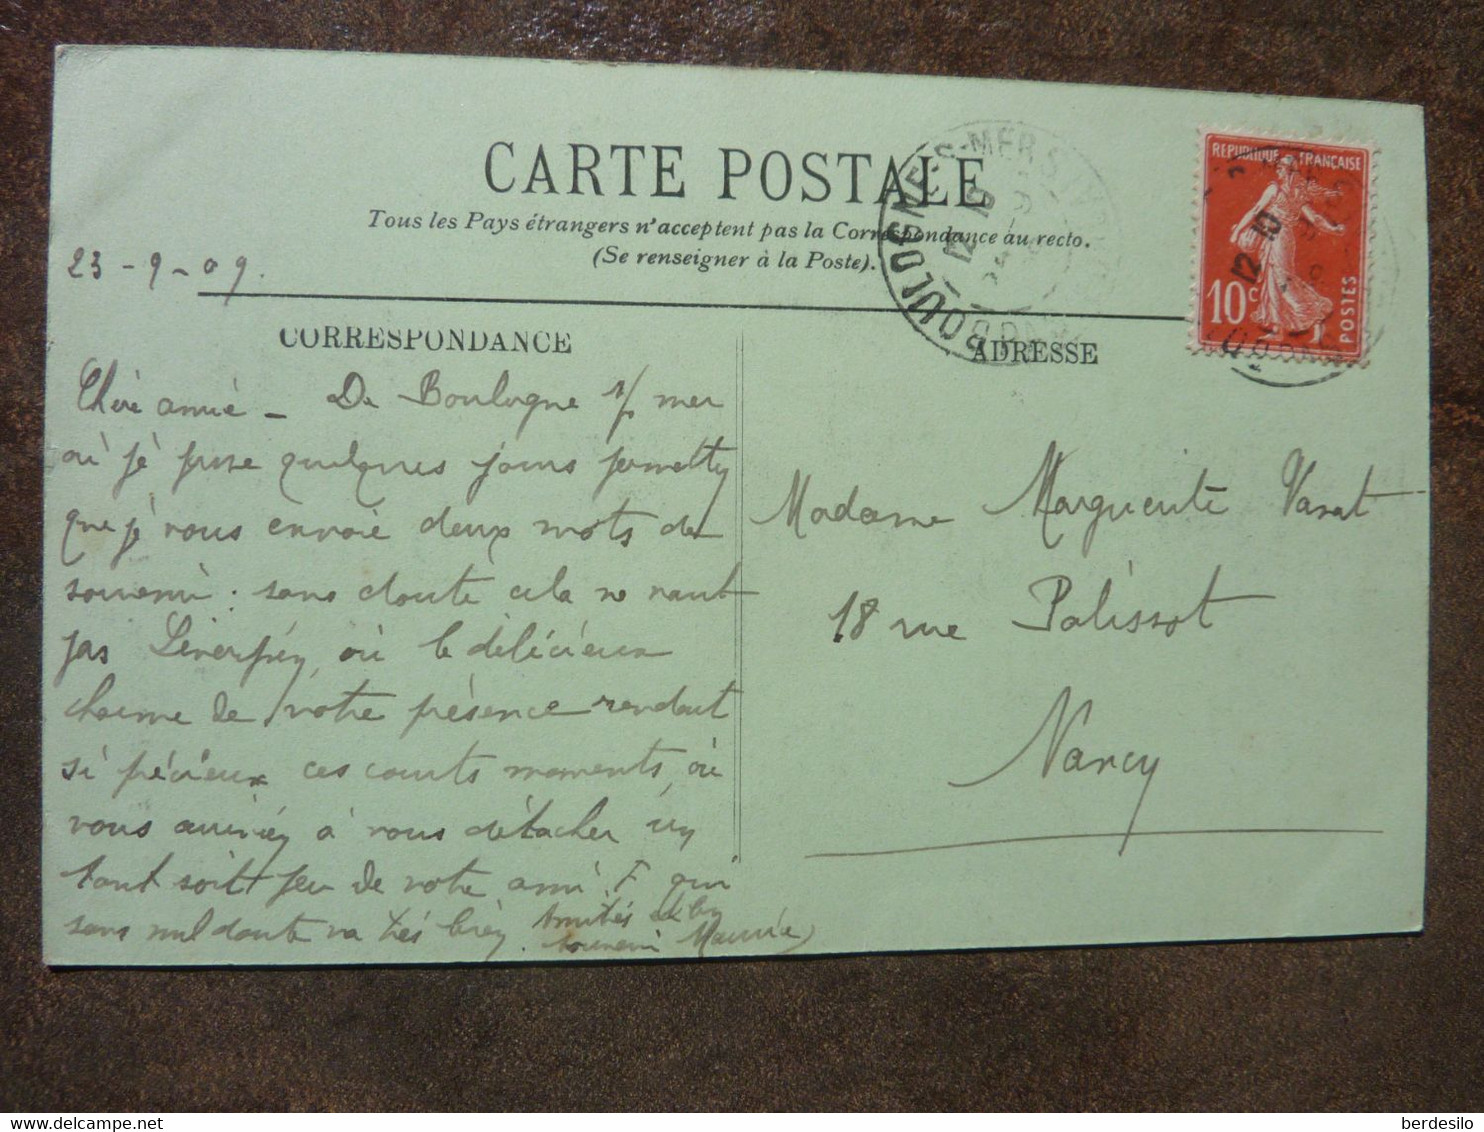 CARTE POSTALE
Tous les Pays étrangers n'acceptent pas la Correspondance au recto.
(Se renseigner à la Poste).
23-9-09.
CORRESPONDANCE
Chère amie - De Boulogne s/ mer
où je passe quelques jours permettez
que je vous envoie deux mots de
souvenir : sans doute cela ne vaut
pas où le délicieux
charme de votre présence rendait
si précieux ces courts moments, où
vous arriviez à vous détacher un
tant soit peu de votre ami F qui
sans nul doute va très bien. Amitiés et bon
souvenir Maurice
ADRESSE
Madame Marguerite Vanat
18 rue Palissot
Nancy
BOULOGNE-S-MER
12 10
REPUBLIQUE FRANÇAISE
10c
POSTES
12 10
berdesilo